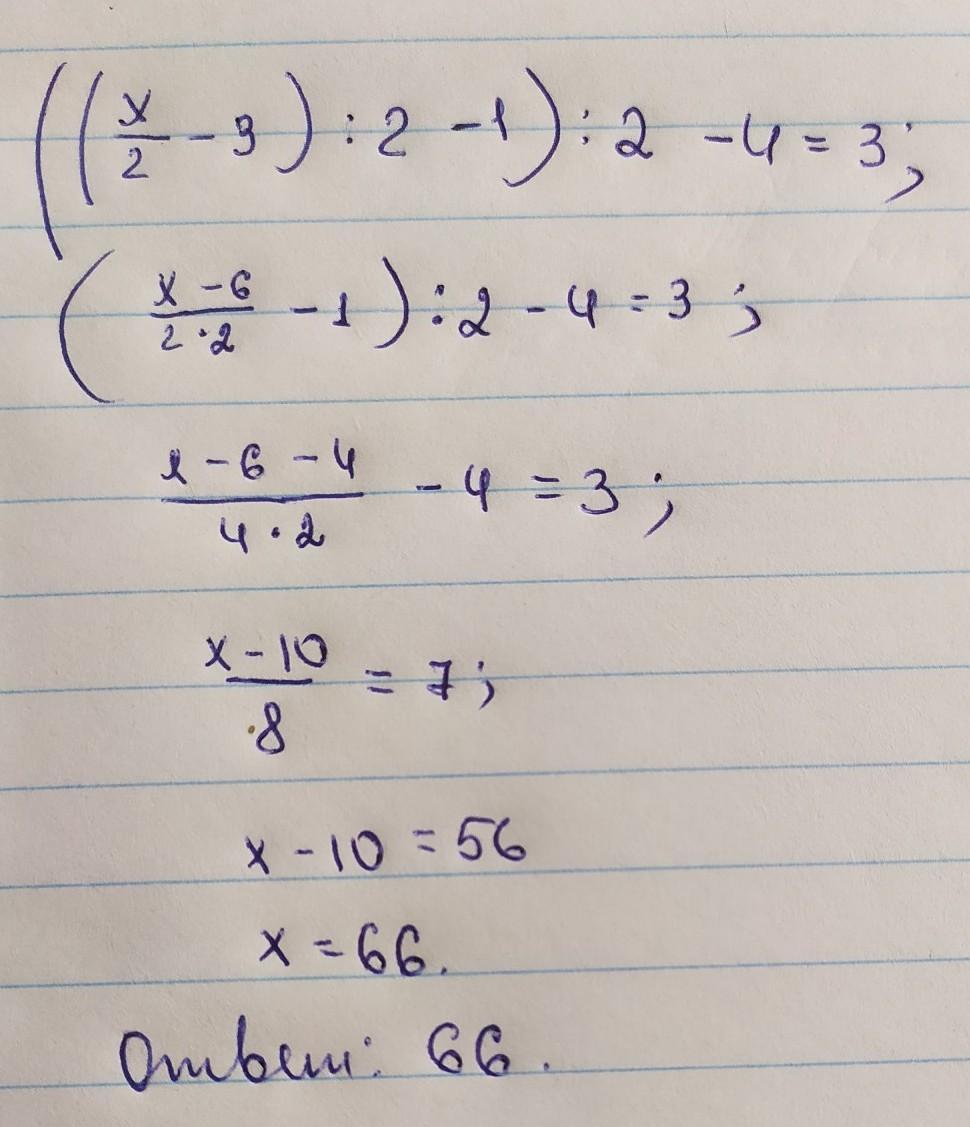 ((x/2 - 3) : 2 - 1) : 2 - 4 = 3;
(x - 6 / 2·2 - 1) : 2 - 4 = 3;
x - 6 - 4 / 4·2 - 4 = 3;
x - 10 / 8 = 7;
x - 10 = 56
x = 66.
Ответ: 66.